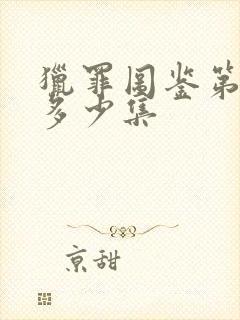 猎罪图鉴第
多少集
京甜